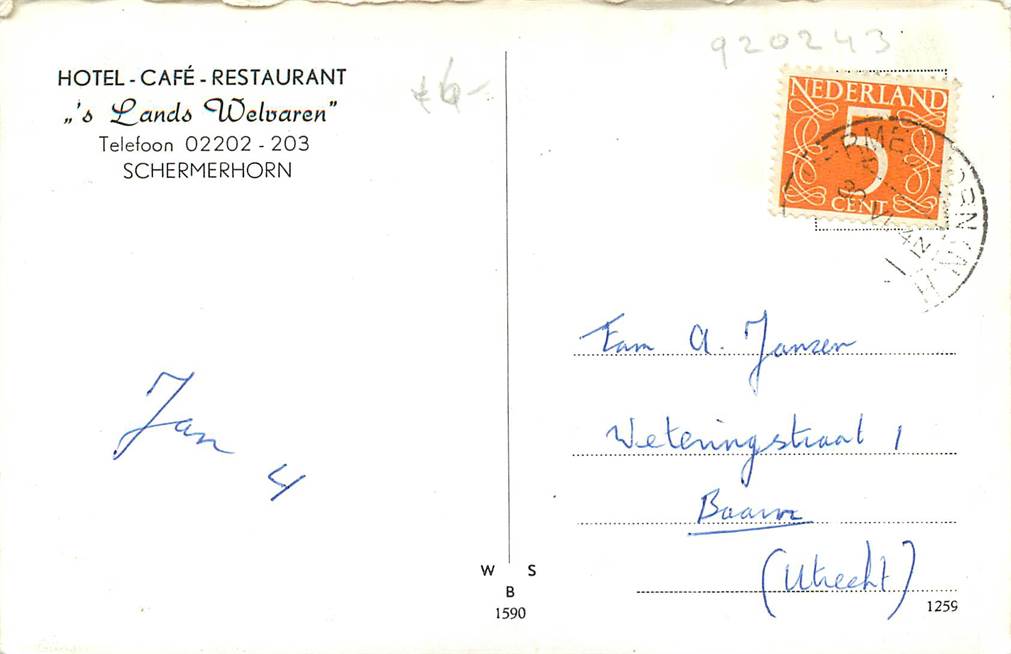 HOTEL - CAFÉ - RESTAURANT
„'s Lands Welvaren”
Telefoon 02202 - 203
SCHERMERHORN
920243
NEDERLAND
5
CENT
Fam A. Jansen
Weteringstraat 1
Baarn
(Utrecht)
Jan
4
W S
B
1590
1259